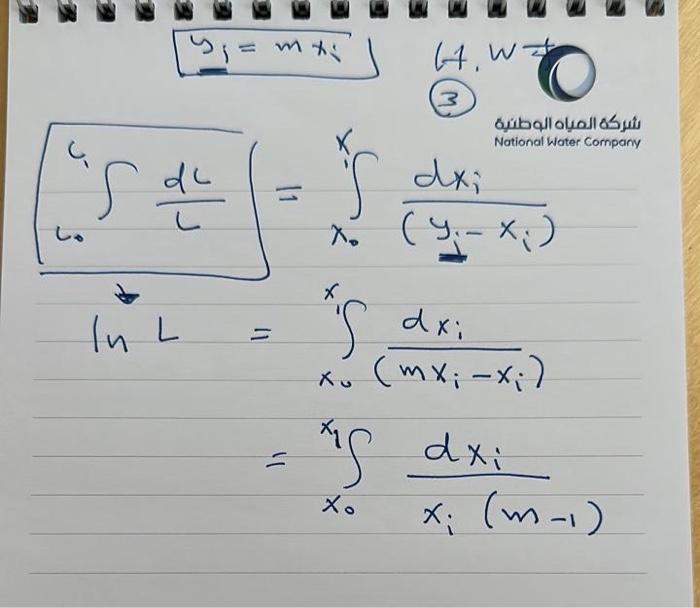 y_i = m x_i
H.W #
3
شركة المياه الوطنية
National Water Company
∫_{L_0}^{L_1} dL / L = ∫_{x_0}^{x_1} dx_i / (y_i - x_i)
ln L = ∫_{x_0}^{x_1} dx_i / (m x_i - x_i)
= ∫_{x_0}^{x_1} dx_i / x_i (m - 1)